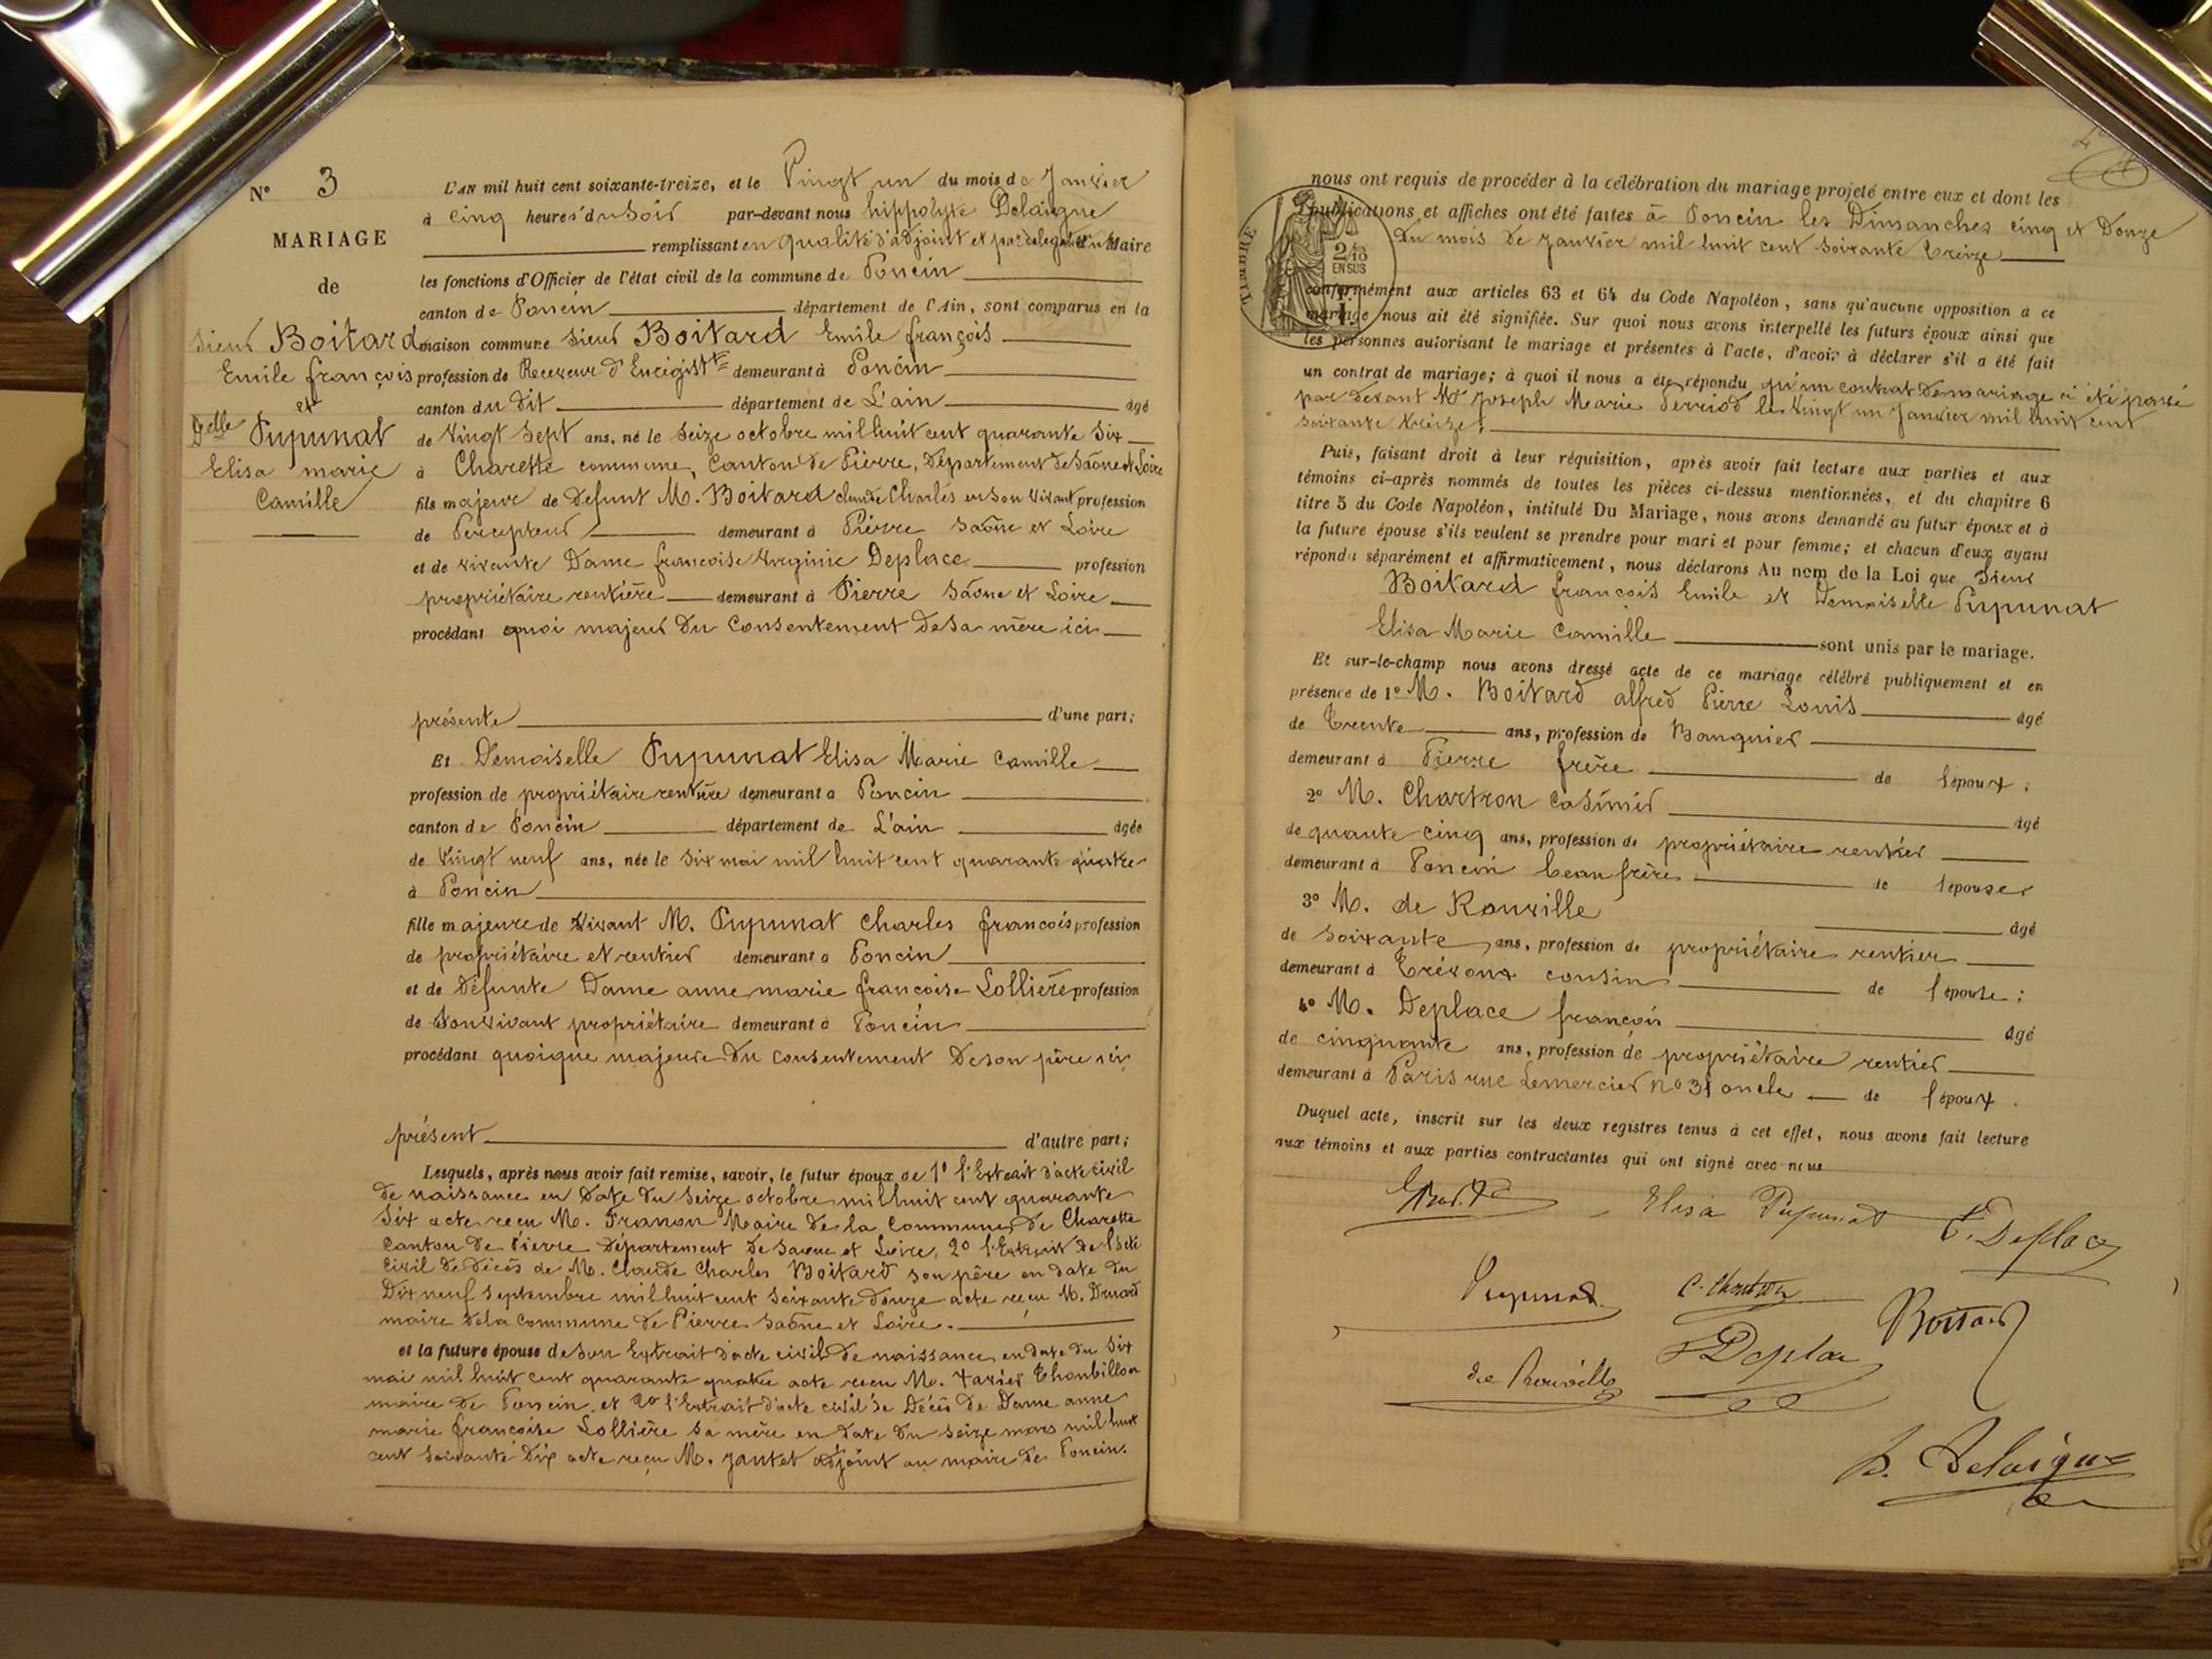 N° 3
MARIAGE
de
Sieur Boitard
Emile françois
et
Delle Pupunat
Elisa marie
Camille
L'AN mil huit cent soixante-treize, et le Vingt un du mois de Janvier
à cinq heures du soir par-devant nous hippolyte Delaigne
remplissant en qualité d'adjoint et par délégation du Maire
les fonctions d'Officier de l'état civil de la commune de Poncin
canton de Poncin département de l'Ain, sont comparus en la
maison commune Sieur Boitard Emile françois
profession de Receveur d'Enregistte demeurant à Poncin
canton du dit département de L'ain âgé
de Vingt Sept ans, né le Seize octobre mil huit cent quarante six
à Charette commune, Canton de Pierre, Département de Saône et Loire
fils majeur de Defunt M. Boitard claude Charles en son vivant profession
de Percepteur demeurant à Pierre Saône et Loire
et de vivante Dame francoise Virginie Deplace profession
propriétaire rentière demeurant à Pierre Saône et Loire
procédant quoi majeur du Consentement de sa mère ici
présente d'une part;
Et Demoiselle Pupunat Elisa Marie Camille
profession de propriétaire rentière demeurant à Poncin
canton de Poncin département de L'ain âgée
de Vingt neuf ans, née le Six mai mil huit cent quarante quatre
à Poncin
fille majeure de Vivant M. Pupunat Charles francois profession
de propriétaire et rentier demeurant à Poncin
et de Défunte Dame anne marie francoise Lollière profession
de Son vivant propriétaire demeurant à Poncin
procédant quoique majeure du consentement de son père ici
présent d'autre part;
Lesquels, après nous avoir fait remise, savoir, le futur époux de 1° l'Extrait d'acte civil
de naissance en date du Seize octobre mil huit cent quarante
Six acte reçu M. Franon Maire de la Commune de Charette
Canton de Pierre Département de Saone et Loire, 2° l'Extrait de l'acte
Civil de décès de M. Claude Charles Boitard son père en date du
Dix neuf Septembre mil huit cent Soixante douze acte reçu M. Druard
maire de la Commune de Pierre Saône et Loire.
et la future épouse de son Extrait d'acte civil de naissance en date du Six
mai mil huit cent quarante quatre acte reçu M. Xavier Thoubillon
maire de Poncin et 2° l'Extrait d'acte civil de Décès de Dame anne
marie francoise Lollière sa mère en date du Seize mars mil huit
cent soixante Dix acte reçu M. Jantet adjoint au maire de Poncin.
TIMBRE
2/10
EN SUS
nous ont requis de procéder à la célébration du mariage projeté entre eux et dont les
publications et affiches ont été faites à Poncin les Dimanches cinq et Douze
du mois de Janvier mil huit cent soixante treize
conformément aux articles 63 et 64 du Code Napoléon, sans qu'aucune opposition à ce
mariage nous ait été signifiée. Sur quoi nous avons interpellé les futurs époux ainsi que
les personnes autorisant le mariage et présentes à l'acte, d'avoir à déclarer s'il a été fait
un contrat de mariage; à quoi il nous a été répondu qu'un contrat de mariage a été passé
par devant Me Joseph Marie Perriod le Vingt un Janvier mil huit cent
soixante treize.
Puis, faisant droit à leur réquisition, après avoir fait lecture aux parties et aux
témoins ci-après nommés de toutes les pièces ci-dessus mentionnées, et du chapitre 6
titre 5 du Code Napoléon, intitulé Du Mariage, nous avons demandé au futur époux et à
la future épouse s'ils veulent se prendre pour mari et pour femme; et chacun d'eux ayant
répondu séparément et affirmativement, nous déclarons Au nom de la Loi que Sieur
Boitard françois Emile et Demoiselle Pupunat
Elisa Marie Camille sont unis par le mariage.
Et sur-le-champ nous avons dressé acte de ce mariage célébré publiquement et en
présence de 1° M. Boitard alfred Pierre Louis âgé
de Trente ans, profession de Banquier
demeurant à Pierre frère de l'époux;
2° M. Chartron Casimir âgé
de quante cinq ans, profession de propriétaire rentier
demeurant à Poncin beau frère de l'épouse
3° M. de Rouville âgé
de soixante ans, profession de propriétaire rentier
demeurant à Trévoux cousin de l'épouse;
4° M. Deplace françois âgé
de cinquante ans, profession de propriétaire rentier
demeurant à Paris rue Lemercier n° 31 oncle de l'époux.
Duquel acte, inscrit sur les deux registres tenus à cet effet, nous avons fait lecture
aux témoins et aux parties contractantes qui ont signé avec nous
Elisa Pupunat
F. Deplace
Pupunat
C. Chartron
Boitard
Deplace
de Rouville
h. Delaigue